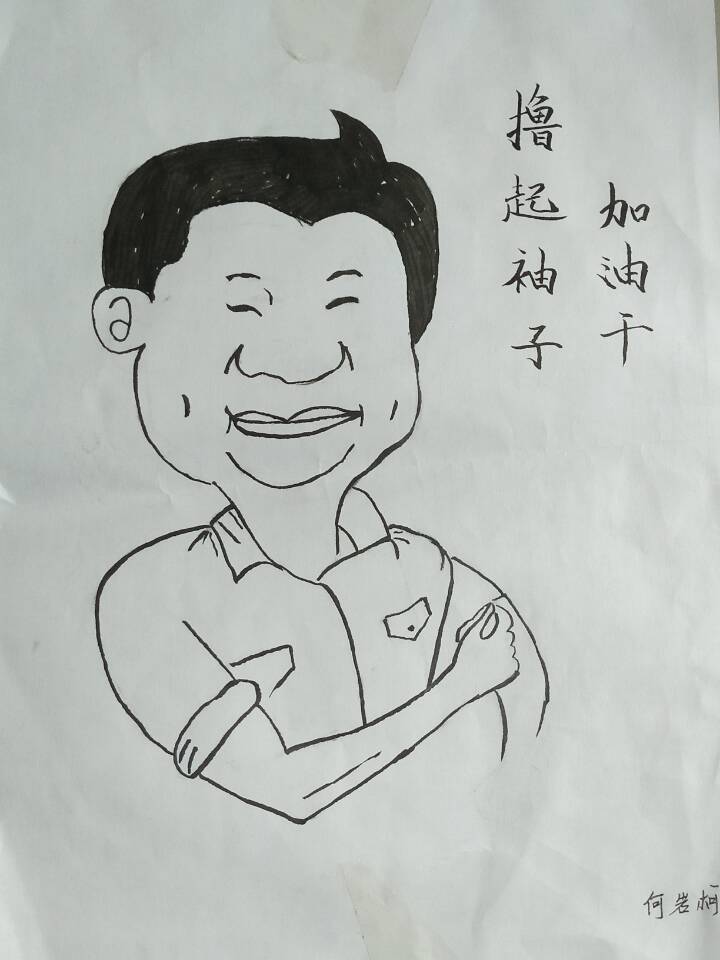 撸起袖子
加油干
何岩柯